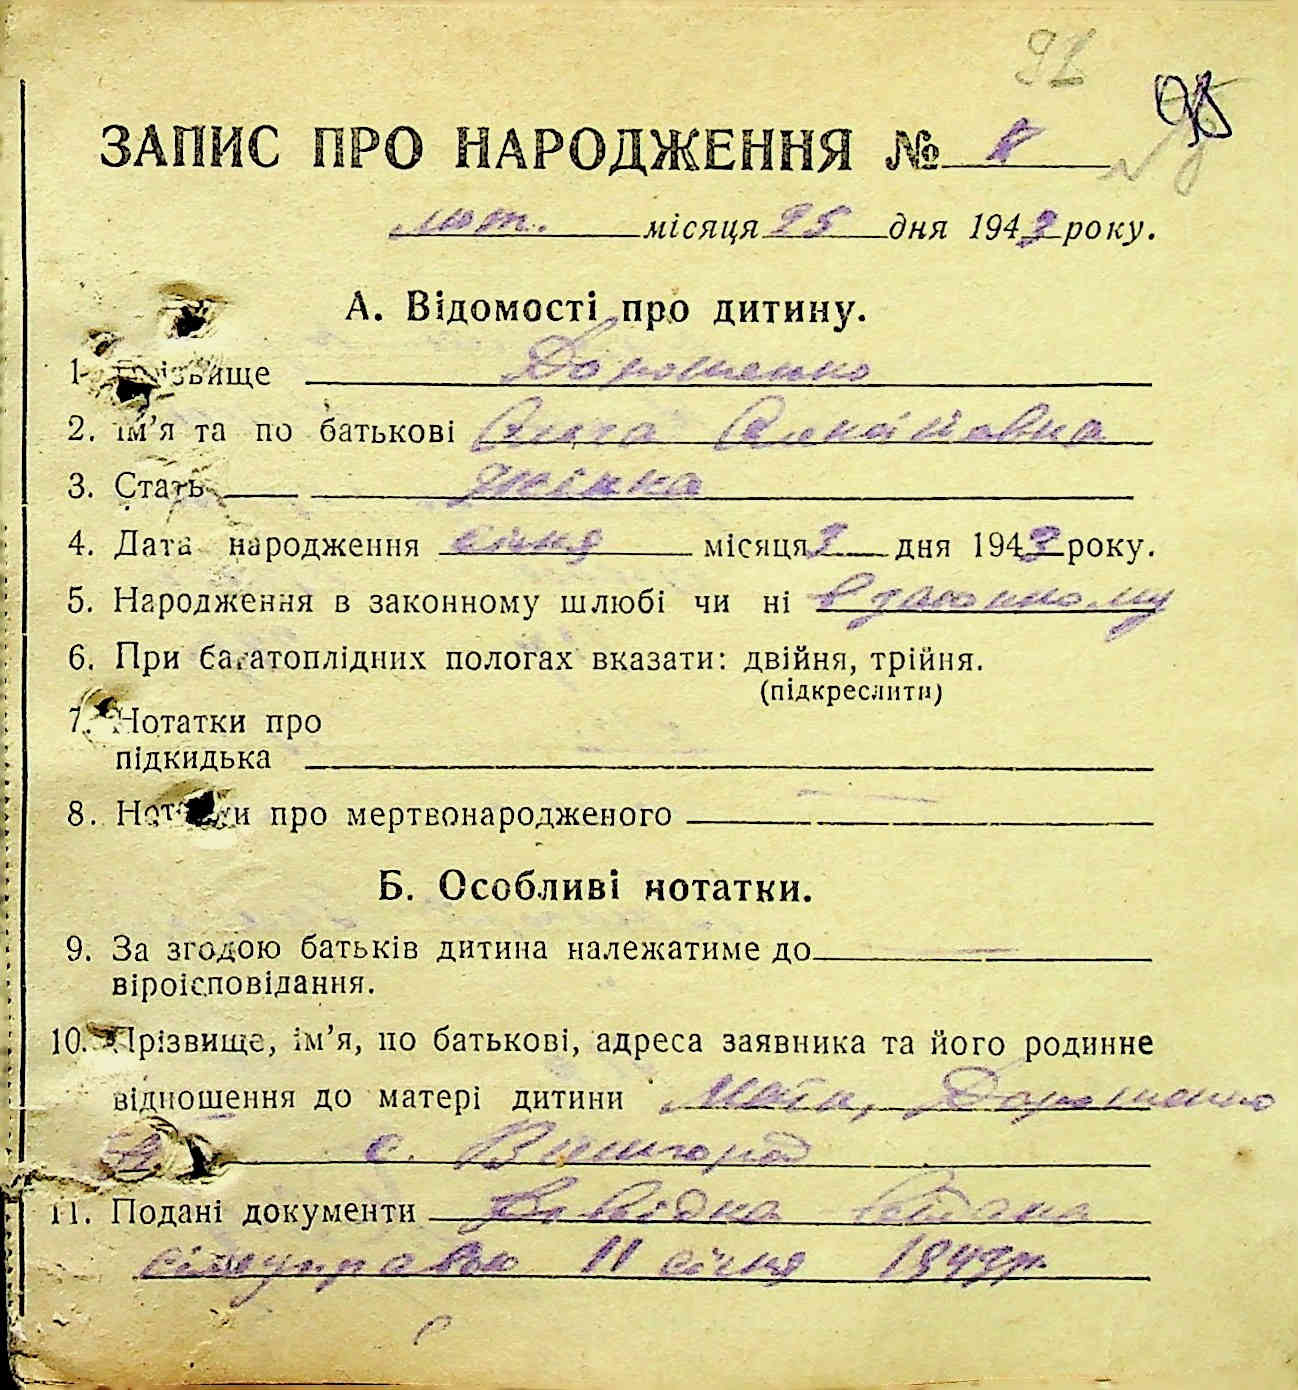 92
95
ЗАПИС ПРО НАРОДЖЕННЯ № 8
лют. місяця 25 дня 1943 року.
А. Відомості про дитину.
1. Прізвище Дорошенко
2. Ім'я та по батькові Ольга
3. Стать жінка
4. Дата народження січня місяця 2 дня 1943 року.
5. Народження в законному шлюбі чи ні в законному
6. При багатоплідних пологах вказати: двійня, трійня.
(підкреслити)
7. Нотатки про
підкидька
8. Нотатки про мертвонародженого
Б. Особливі нотатки.
9. За згодою батьків дитина належатиме до
віроісповідання.
10. Прізвище, ім'я, по батькові, адреса заявника та його родинне
відношення до матері дитини Мати, Дорошенко
с. Вишгород
11. Подані документи Довідка видана
сілеуправою 11 січня 1943р.